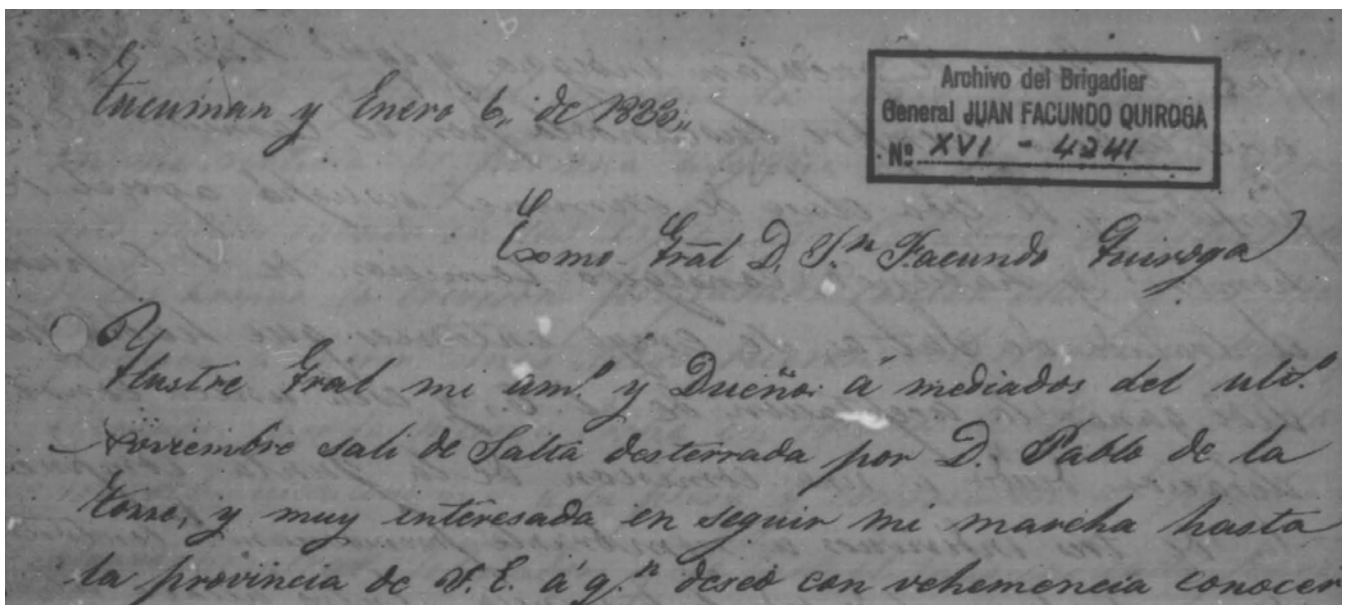 Tucuman y Enero 6,, de 1833,,
Archivo del Brigadier
General JUAN FACUNDO QUIROGA
Nº XVI - 4241
Exmo Gral D. J.n Facundo Quiroga
Ylustre Gral mi am.o y Dueño: á mediados del ult.o
Noviembre sali de Salta desterrada por D. Pablo de la
Torre, y muy interesada en seguir mi marcha hasta
la provincia de V. E. á q.n deseo con vehemencia conocer